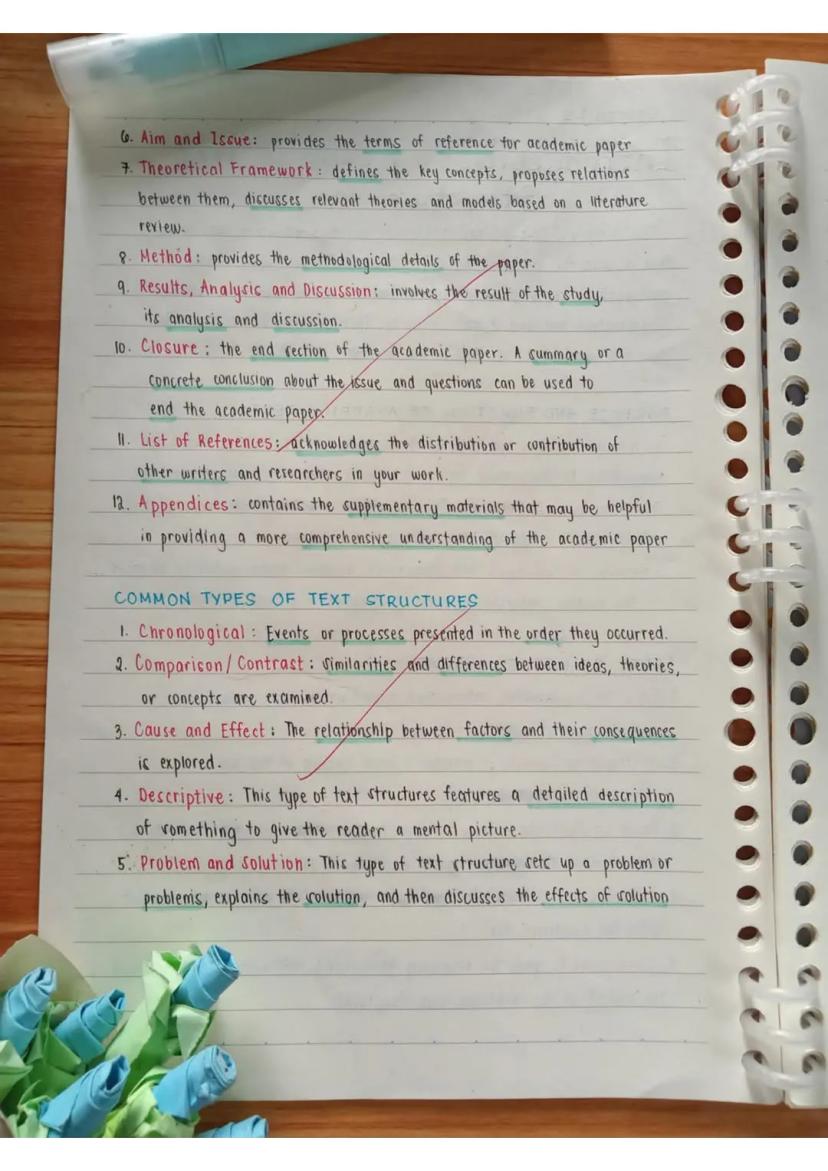 6. Aim and Issue: provides the terms of reference for academic paper
7. Theoretical Framework: defines the key concepts, proposes relations
between them, discusses relevant theories and models based on a literature
review.
8. Method: provides the methodological details of the paper.
9. Results, Analysis and Discussion: involves the result of the study,
its analysis and discussion.
10. Closure: the end section of the academic paper. A summary or a
concrete conclusion about the issue and questions can be used to
end the academic paper.
11. List of References: acknowledges the distribution or contribution of
other writers and researchers in your work.
12. Appendices: contains the supplementary materials that may be helpful
in providing a more comprehensive understanding of the academic paper
COMMON TYPES OF TEXT STRUCTURES
1. Chronological: Events or processes presented in the order they occurred.
2. Comparison/Contrast: similarities and differences between ideas, theories,
or concepts are examined.
3. Cause and Effect: The relationship between factors and their consequences
is explored.
4. Descriptive: This type of text structures features a detailed description
of something to give the reader a mental picture.
5. Problem and Solution: This type of text structure sets up a problem or
problems, explains the solution, and then discusses the effects of solution